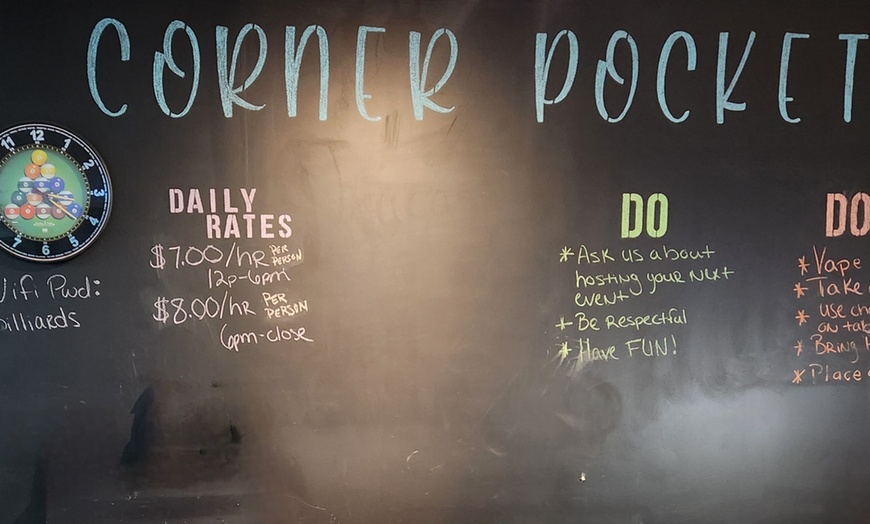 CORNER POCKET
11 12 1
2
3
4
5
6
7
DAILY
RATES
$7.00/HR PER PERSON
12p-6pm
$8.00/HR PER PERSON
6pm-close
Wifi Pwd:
billiards
DO
*Ask us about
hosting your next
event
*Be Respectful
*Have FUN!
DO
*Vape
*Take
*use
on
*Bring
*Place